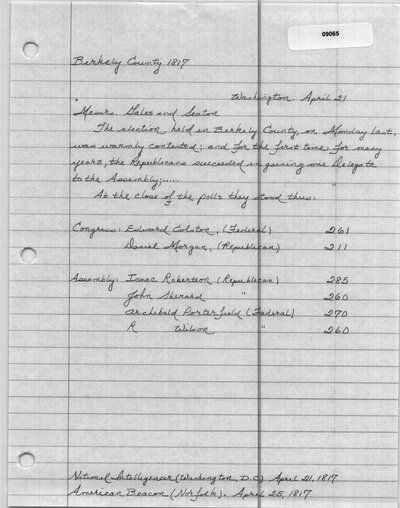 09065
Berkely County 1817
" Washington. April 21
Messrs. Gales and Seaton
The election held in Berkely County, on Monday last,
was warmly contested; and for the first time for many
years, the Republicans succeeded in gaining one Delegate
to the Assembly;..... "
At the close of the polls they stood thus:
Congress: Edward Colston, (Federal) 261
Daniel Morgan, (Republican) 211
Assembly: Isaac Robertson (Republican) 285
John Sherard " 260
Archibald Porterfield (Federal) 270
R Wilson " 260
National Intelligencer (Washington, D.C.) April 21, 1817
American Beacon (Norfolk). April 25, 1817